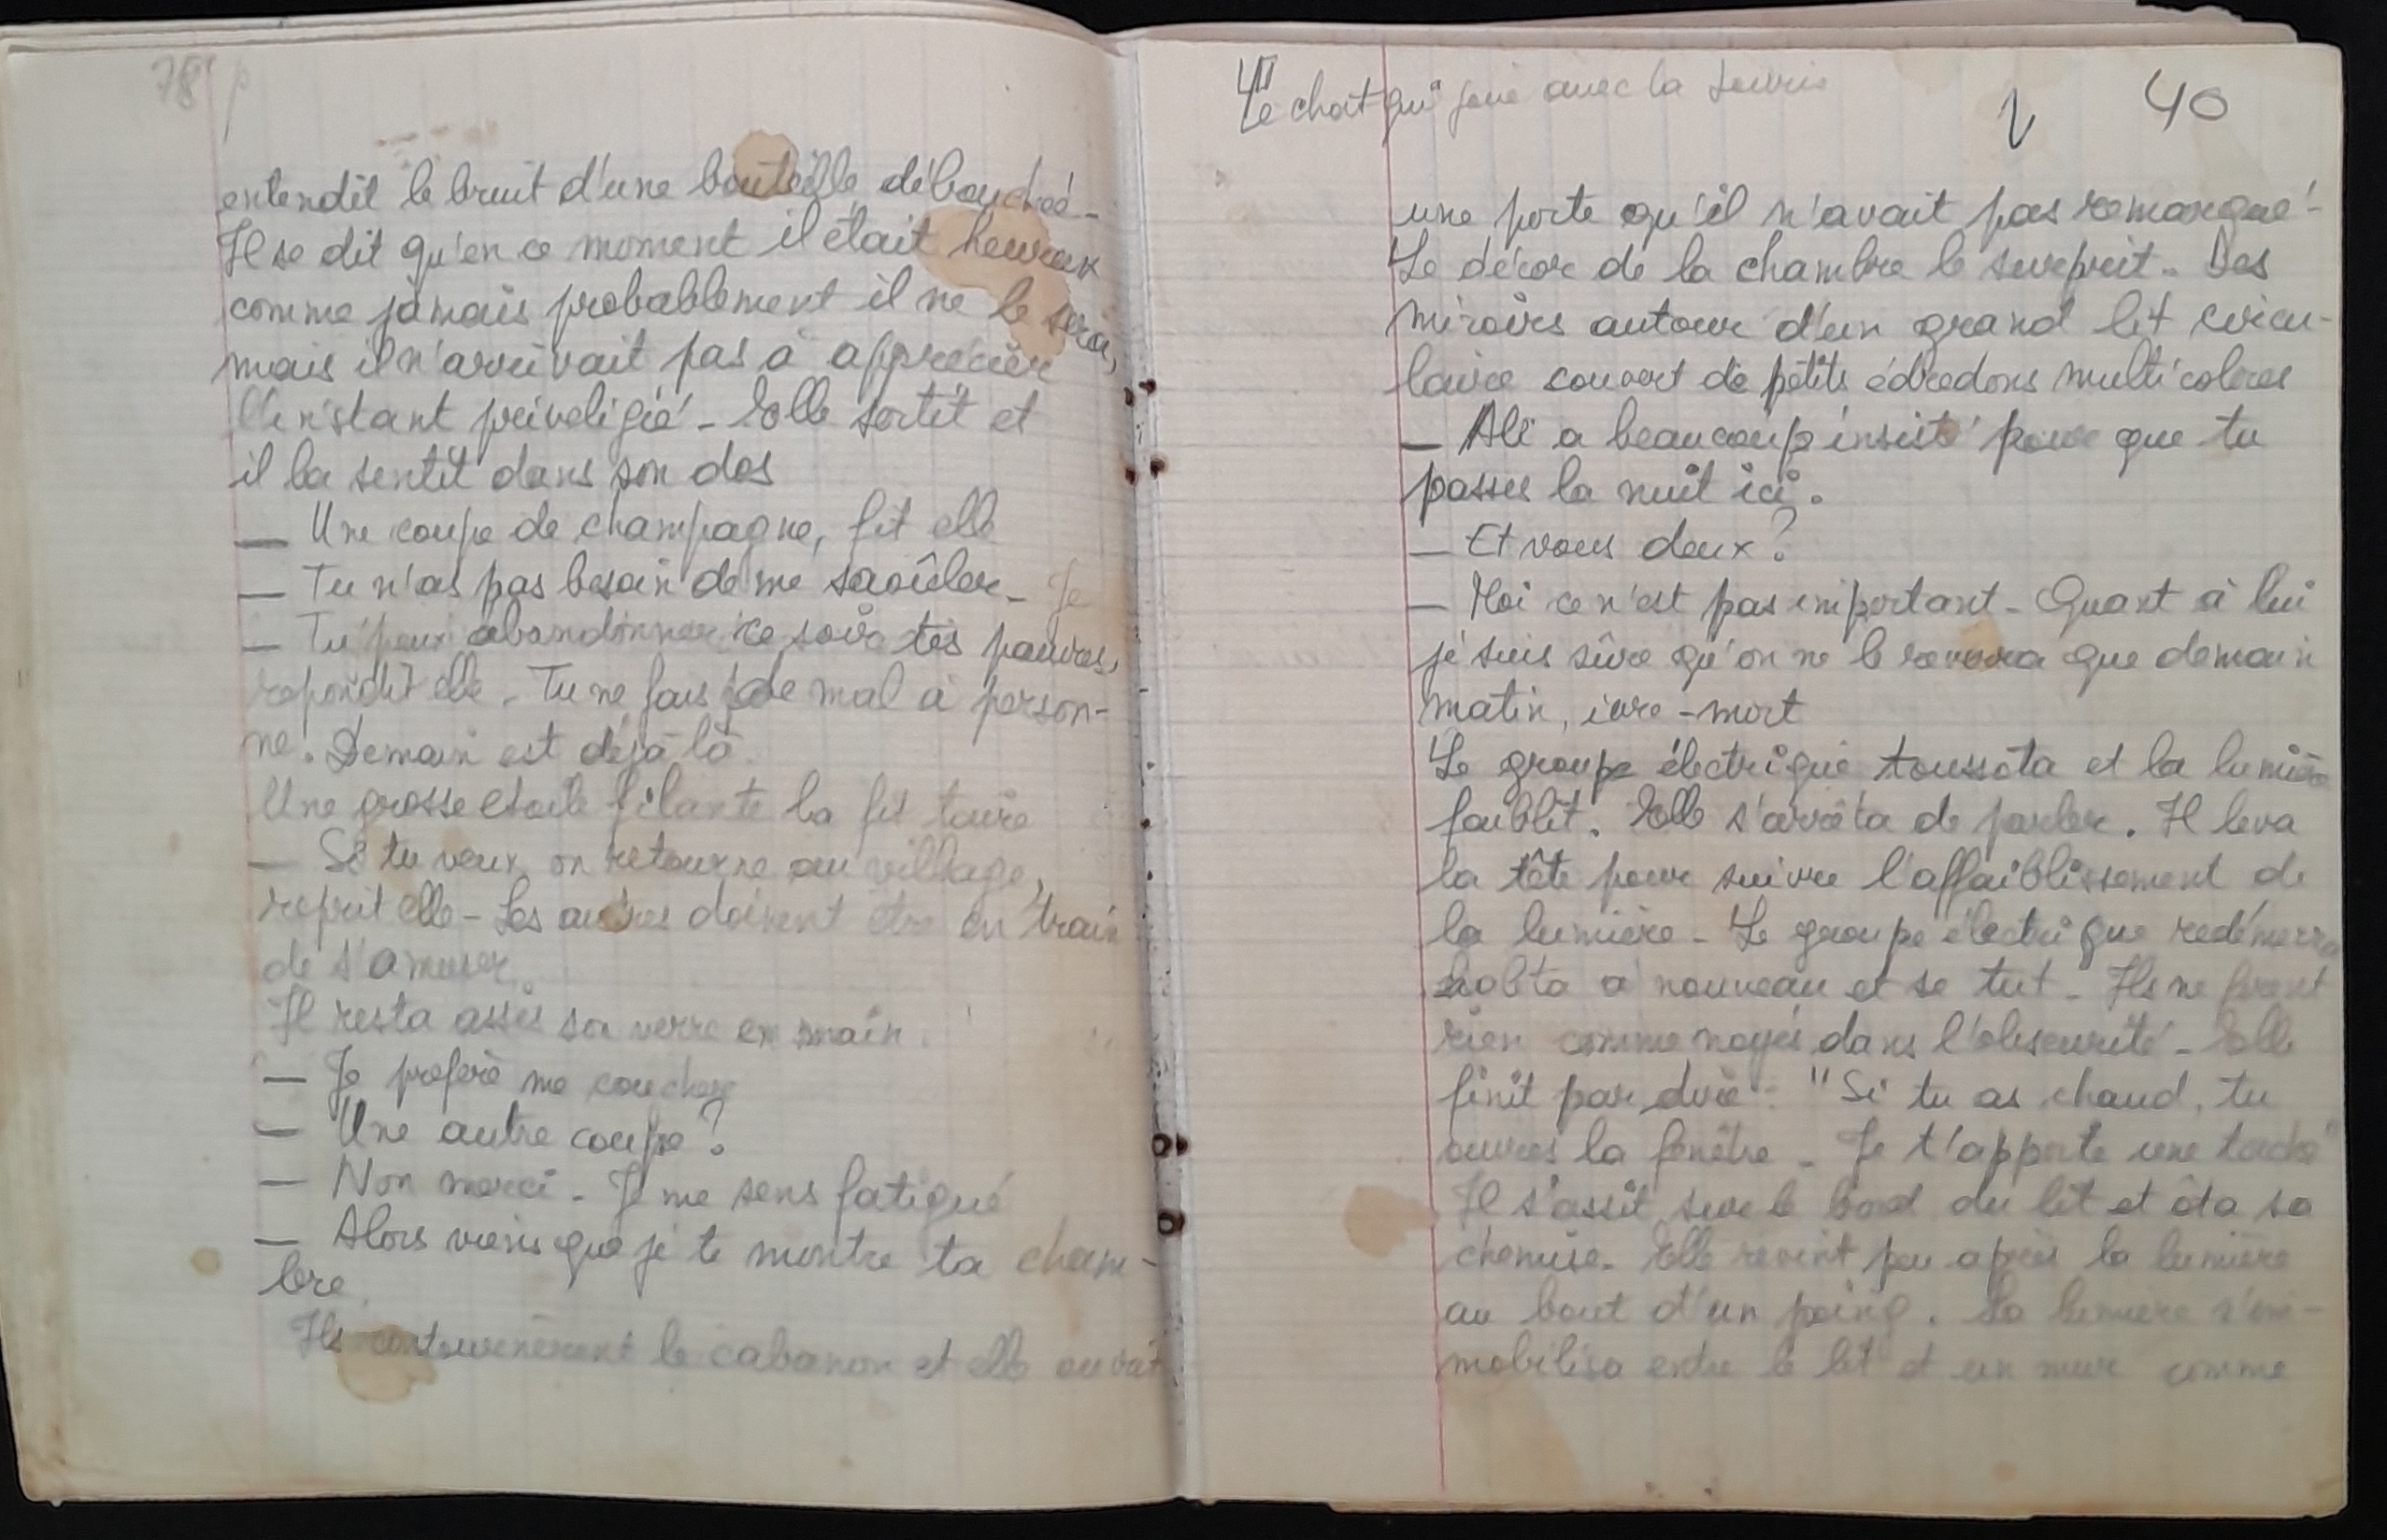 78 p
entendit le bruit d'une bouteille débouchée -
Il se dit qu'en ce moment il était heureux
comme jamais probablement il ne le sera,
mais il n'arrivait pas à apprécier
l'instant priveligié - Elle sortit et
il la sentit dans son dos
— Une coupe de champagne, fit elle
— Tu n'as pas besoin de me saoûler - Je
— Tu peux abandonner ce soir tes pauvres,
repondit elle - Tu ne fais de mal à person-
ne. Demain est déjà là.
Une grosse etoile filante la fit taire
— Si tu veux on retourne au village,
reprit elle - Les autres doivent etre en train
de s'amuser.
Il resta assis son verre en main.
— Je prefère me coucher
— Une autre coupe ?
— Non merci - Je me sens fatigué
— Alors viens que je te montre ta cham-
bre.
Ils contournèrent le cabanon et elle ouvrit
Le chat qui joue avec la souris
40
une porte qu'il n'avait pas remarqué -
Le décor de la chambre le surprit - Des
miroirs autour d'un grand lit circu-
laire couvert de petits édredons multicolores
— Ali a beaucoup insisté pour que tu
passes la nuit ici.
— Et vous deux ?
— Moi ce n'est pas important - Quant à lui
je suis sûre qu'on ne le reverra que demain
matin, ivre-mort
Le groupe électrique toussota et la lumière
faiblit. Elle s'arrêta de parler. Il leva
la tête pour suivre l'affaiblissement de
la lumière - Le groupe électrique redémarra
à nouveau et se tut - Ils ne firent
rien comme noyés dans l'obscurité - Elle
finit par dire : "Si tu as chaud, tu
ouvres la fenêtre - Je t'apporte une torche"
Il s'assit sur le bord du lit et ôta sa
chemise. Elle revint peu après la lumière
au bout d'un poing. La lumière s'im-
mobilisa entre le lit et un mur comme